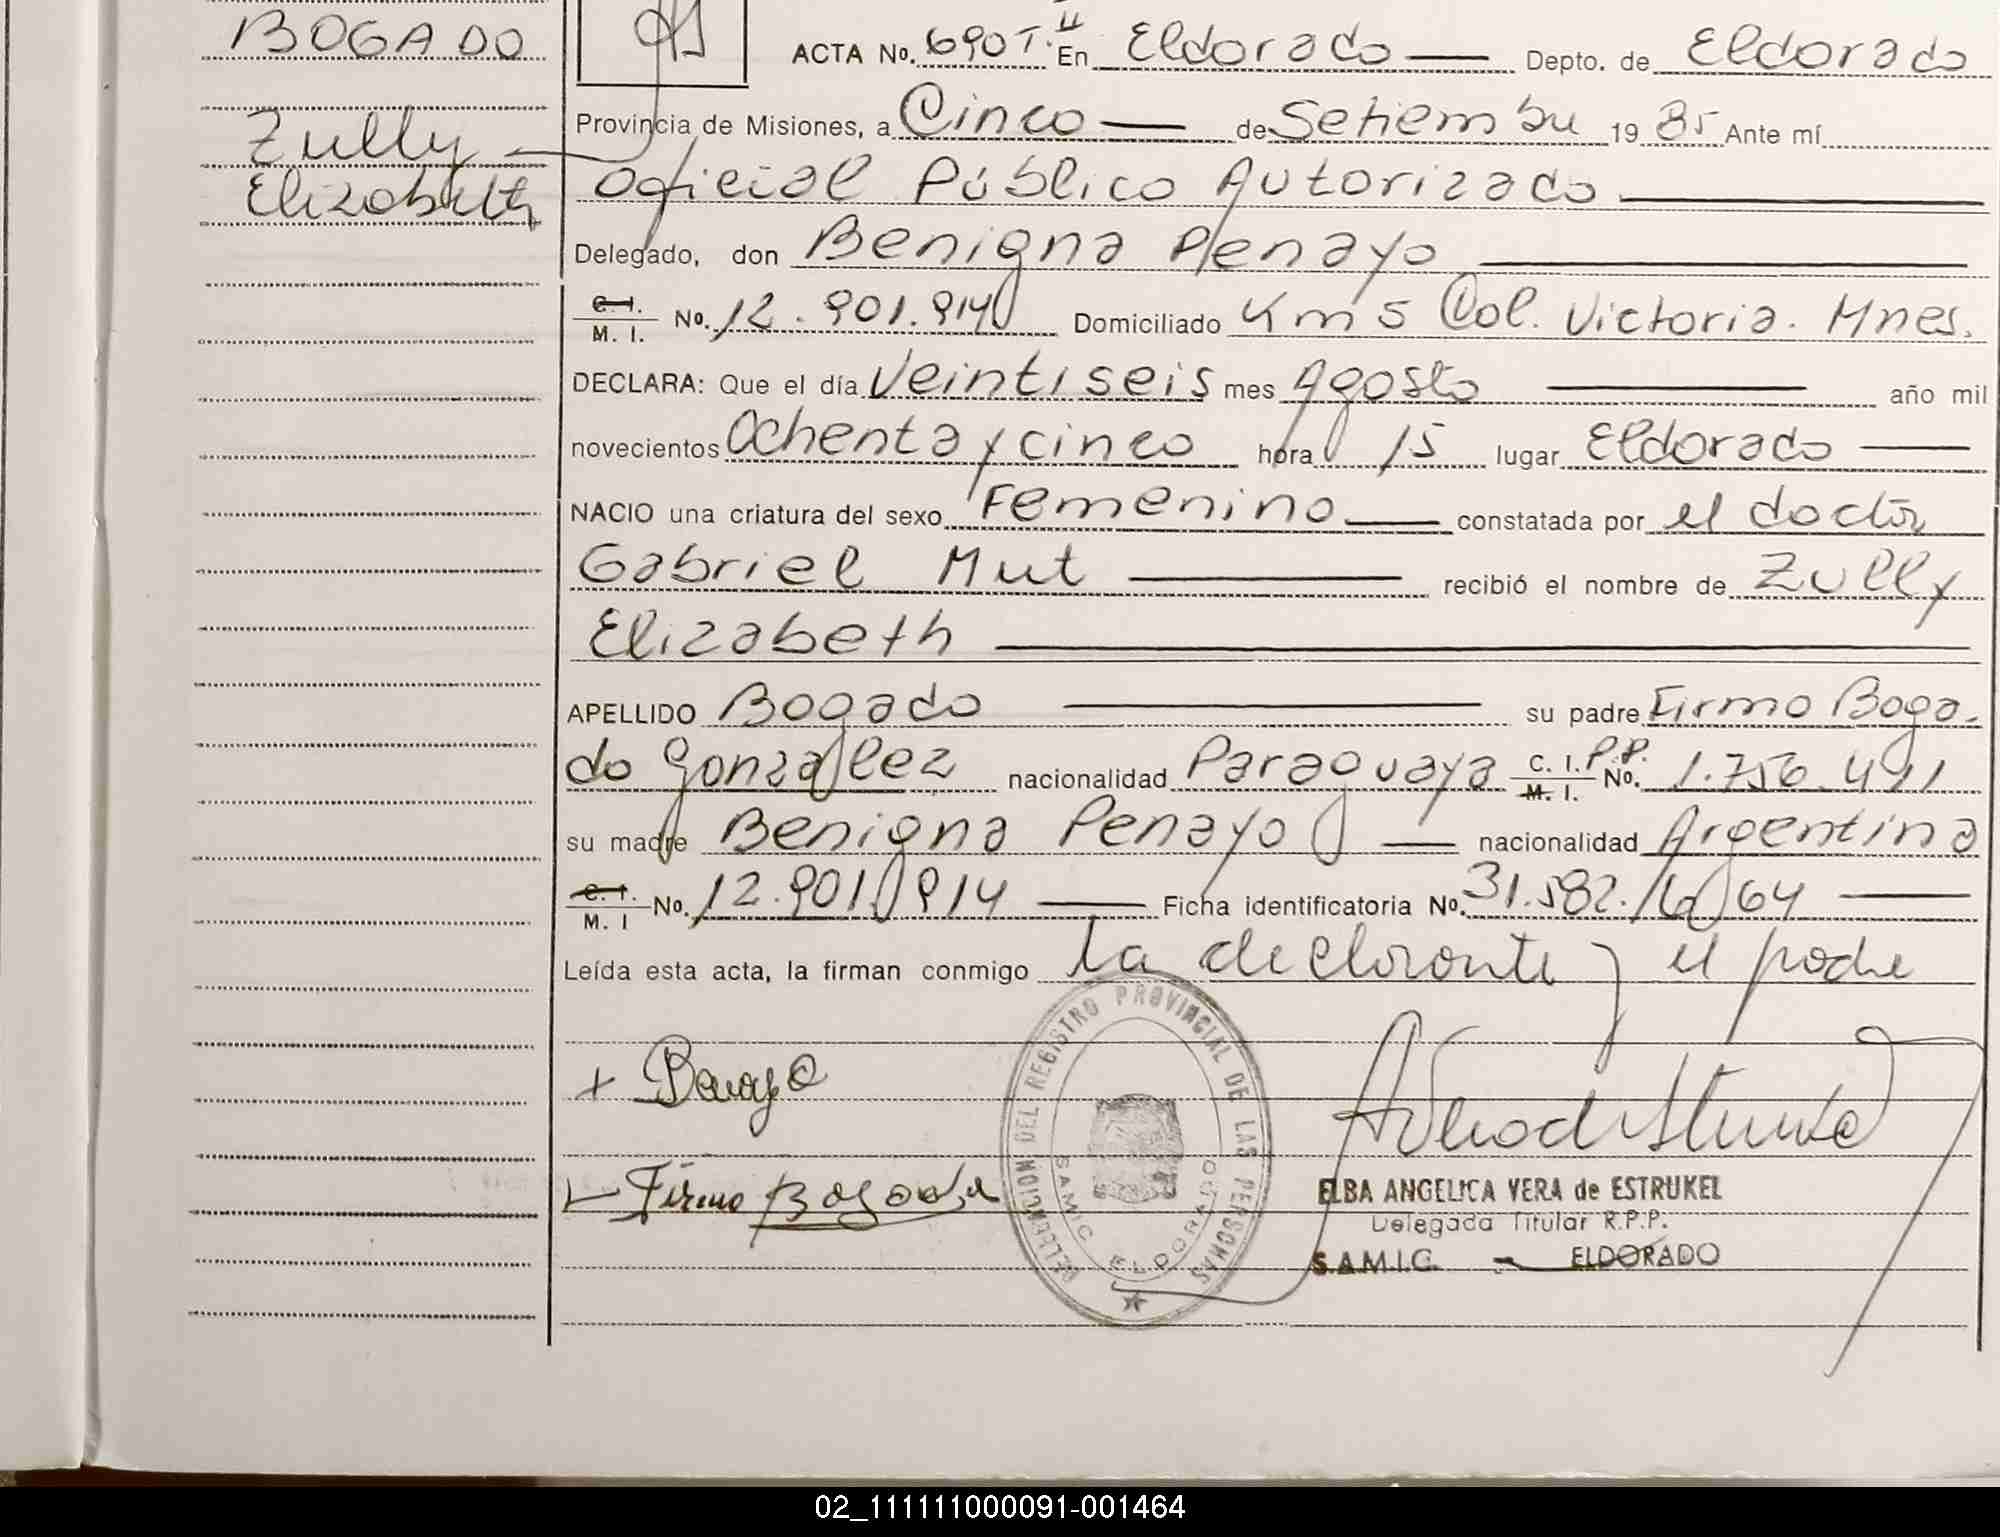 BOGADO
Zully
Elizabeth
ACTA No. 690 T. II En Eldorado Depto. de Eldorado
Provincia de Misiones, a Cinco de Setiembre 1985 Ante mí
Oficial Público Autorizado
Delegado, don Benigna Penayo
C. I. M. I. No. 12.901.914 Domiciliado Km 5 Col. Victoria. Mnes.
DECLARA: Que el día Veintiseis mes Agosto año mil
novecientos Ochenta y cinco hora 15 lugar Eldorado
NACIO una criatura del sexo Femenino constatada por el doctor
Gabriel Mut recibió el nombre de Zully
Elizabeth
APELLIDO Bogado su padre Firmo Boga-
do Gonzalez nacionalidad Paraguaya C. I. P.P. M. I. No. 1.756.491
su madre Benigna Penayo nacionalidad Argentina
C. I. M. I No. 12.901.914 Ficha identificatoria No. 31.582.164
Leída esta acta, la firman conmigo la declarante y el padre
Penayo
Firmo Bogado
DELEGACION DEL REGISTRO PROVINCIAL DE LAS PERSONAS
SAMIC ELDORADO
ELBA ANGELICA VERA de ESTRUKEL
Delegada Titular R.P.P.
S.A.M.I.C. - ELDORADO
02_111111000091-001464